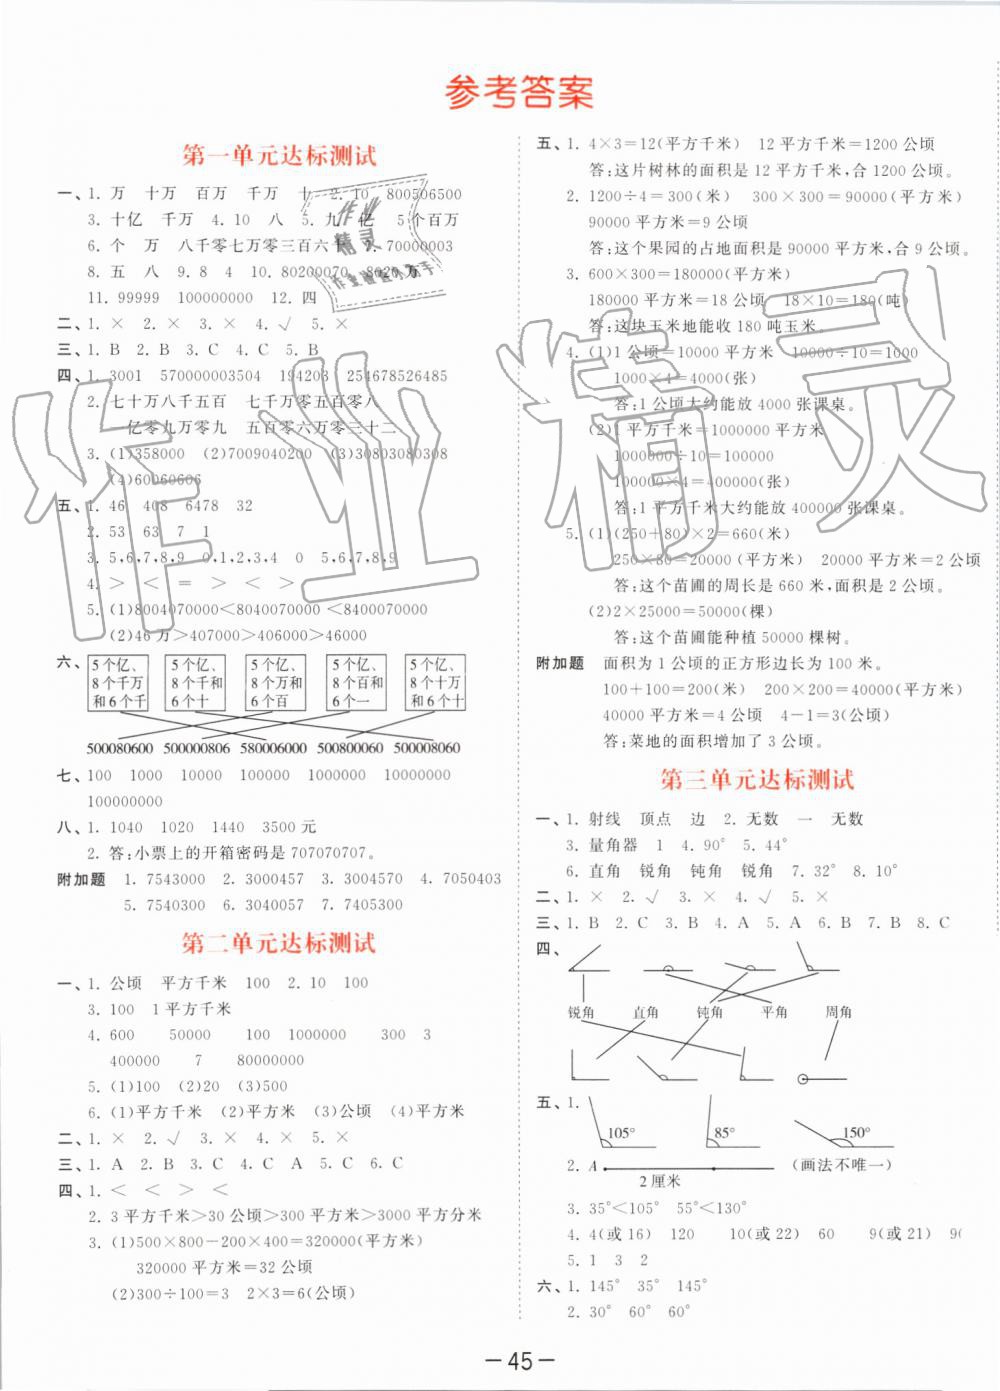 参考答案
第一单元达标测试
一、1. 万 十万 百万 千万 十 2. 10 800506500
3. 十亿 千万 4. 10 八 5. 九 亿 5个百万
6. 个 万 八千零七万零三百六十 7. 70000003
8. 五 八 9. 8 4 10. 80200070 8020万
11. 99999 100000000 12. 四
二、1. × 2. × 3. × 4. √ 5. ×
三、1. B 2. B 3. C 4. C 5. B
四、1. 3001 570000003504 194203 254678526485
2. 七十万八千五百 七千万零五百零八
亿零九万零九 五百零六万零三十二
3. (1)358000 (2)7009040200 (3)30803080308
(4)60060606
五、1. 46 408 6478 32
2. 53 63 7 1
3. 5,6,7,8,9 0,1,2,3,4 0 5,6,7,8,9
4. > < = > < >
5. (1)8004070000<8040070000<8400070000
(2)46万>407000>406000>46000
六、
5个亿、8个千万和6个千
5个亿、8个千和6个十
5个亿、8个万和6个百
5个亿、8个百和6个一
5个亿、8个十万和6个十
500080600 500000806 580006000 500800060 500008060
七、100 1000 10000 100000 1000000 10000000
100000000
八、1. 1040 1020 1440 3500元
2. 答:小票上的开箱密码是707070707。
附加题 1. 7543000 2. 3000457 3. 3004570 4. 7050403
5. 7540300 6. 3040057 7. 7405300
第二单元达标测试
一、1. 公顷 平方千米 100 2. 10 100
3. 100 1平方千米
4. 600 50000 100 1000000 300 3
400000 7 80000000
5. (1)100 (2)20 (3)500
6. (1)平方千米 (2)平方米 (3)公顷 (4)平方米
二、1. × 2. √ 3. × 4. × 5. ×
三、1. A 2. B 3. C 4. A 5. C 6. C
四、1. < < > <
2. 3平方千米>30公顷>300平方米>3000平方分米
3. (1)500×800-200×400=320000(平方米)
320000平方米=32公顷
(2)300÷100=3 2×3=6(公顷)
五、1. 4×3=12(平方千米) 12平方千米=1200公顷
答:这片树林的面积是12平方千米,合1200公顷。
2. 1200÷4=300(米) 300×300=90000(平方米)
90000平方米=9公顷
答:这个果园的占地面积是90000平方米,合9公顷。
3. 600×300=180000(平方米)
180000平方米=18公顷 18×10=180(吨)
答:这块玉米地能收180吨玉米。
4. (1)1公顷=10000平方米 10000÷10=1000
1000×4=4000(张)
答:1公顷大约能放4000张课桌。
(2)1平方千米=1000000平方米
1000000÷10=100000
100000×4=400000(张)
答:1平方千米大约能放400000张课桌。
5. (1)(250+80)×2=660(米)
250×80=20000(平方米) 20000平方米=2公顷
答:这个苗圃的周长是660米,面积是2公顷。
(2)2×25000=50000(棵)
答:这个苗圃能种植50000棵树。
附加题 面积为1公顷的正方形边长为100米。
100+100=200(米) 200×200=40000(平方米)
40000平方米=4公顷 4-1=3(公顷)
答:菜地的面积增加了3公顷。
第三单元达标测试
一、1. 射线 顶点 边 2. 无数 一 无数
3. 量角器 1 4. 90° 5. 44°
6. 直角 锐角 钝角 锐角 7. 32° 8. 10°
二、1. × 2. √ 3. × 4. √ 5. ×
三、1. B 2. C 3. B 4. A 5. A 6. B 7. B 8. C
四、
锐角 直角 钝角 平角 周角
五、1. 105° 85° 150°
2. A 2厘米 (画法不唯一)
3. 35°<105° 55°<130°
4. 4(或16) 120 10(或22) 60 9(或21)
5. 1 3 2
六、1. 145° 35° 145°
2. 30° 60° 60°
— 45 —
作业精灵
作业
精灵